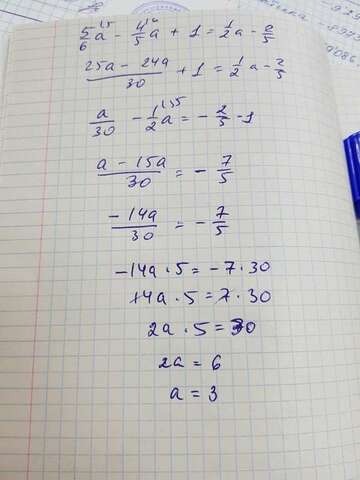 5/6 a^(15 - 4/5^(16 a + 1 = 1/2 a - 2/5
(25a - 24a)/30 + 1 = 1/2 a - 2/5
a/30 - 1/2 a^(15 = - 2/5 - 1
(a - 15a)/30 = - 7/5
(-14a)/30 = - 7/5
-14a · 5 = -7 · 30
14a · 5 = 7 · 30
2a · 5 = 30
2a = 6
a = 3